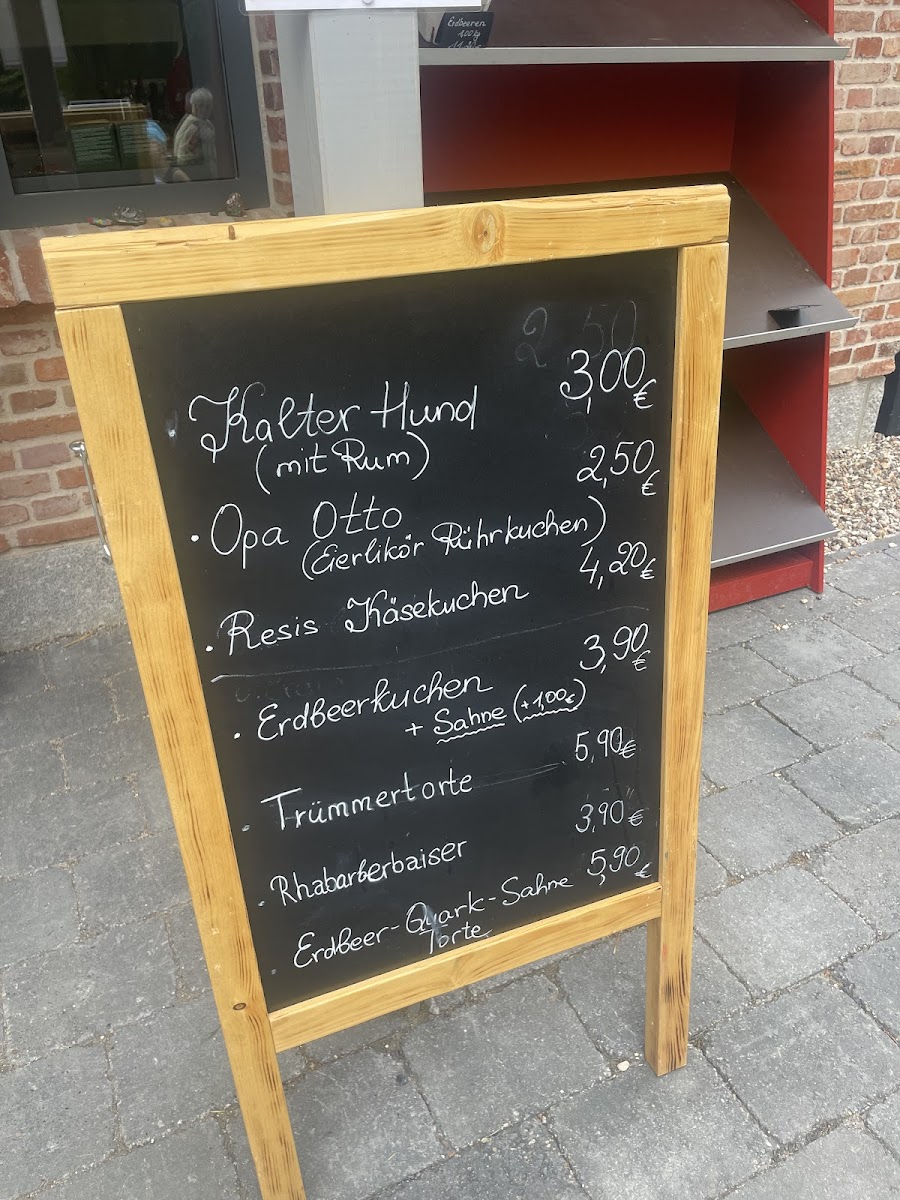 Erdbeeren
2 50
3,00€
Kalter Hund
(mit Rum)
2,50€
· Opa Otto
(Eierlikör Rührkuchen)
4,20€
· Resis Käsekuchen
3,90€
· Erdbeerkuchen
+ Sahne (+1,00€)
5,90€
· Trümmertorte
3,90€
· Rhabarberbaiser
5,90€
· Erdbeer-Quark-Sahne
Torte